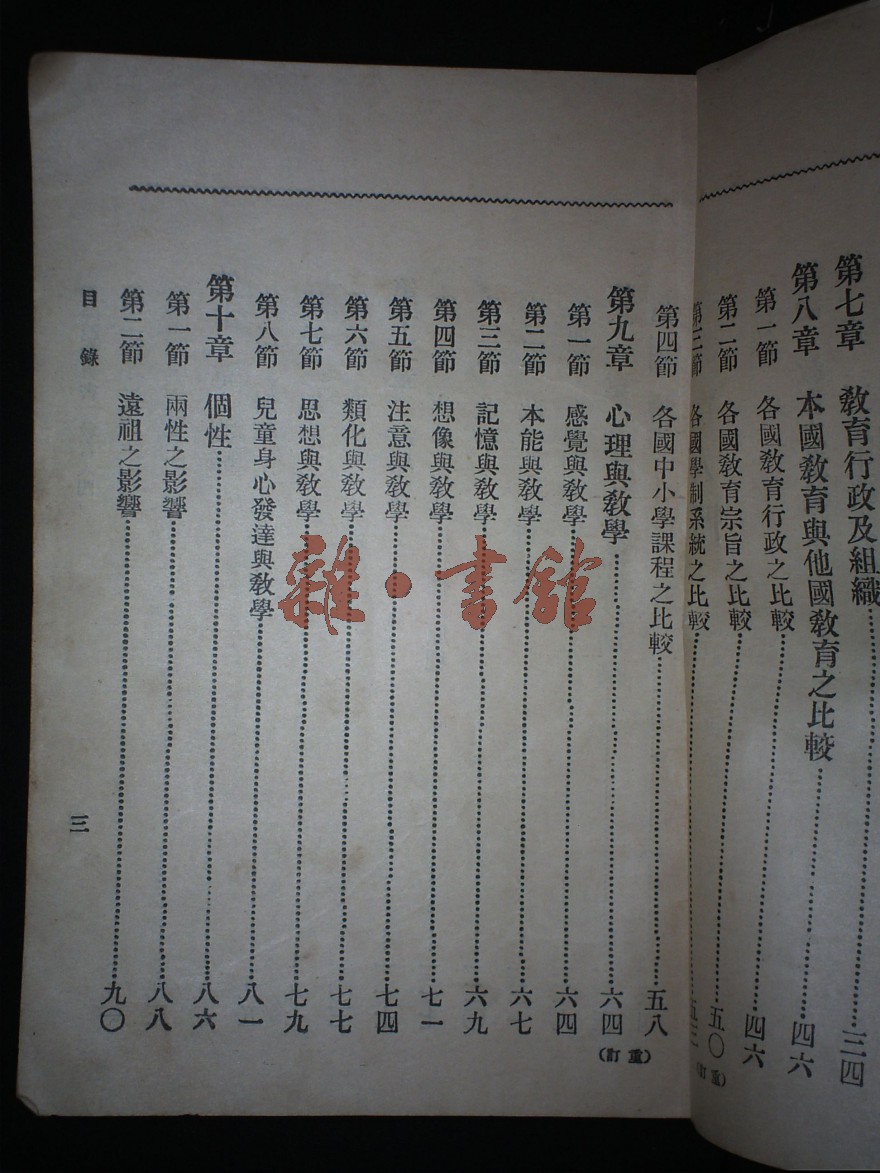 第七章 教育行政及組織 三四
第八章 本國教育與他國教育之比較 四六
第一節 各國教育行政之比較 四六
第二節 各國教育宗旨之比較 五〇
(重訂)
第三節 各國學制系統之比較
第四節 各國中小學課程之比較 五八
第九章 心理與教學 六四
(重訂)
第一節 感覺與教學 六四
第二節 本能與教學 六七
第三節 記憶與教學 六九
第四節 想像與教學 七一
第五節 注意與教學 七四
第六節 類化與教學 七七
第七節 思想與教學 七九
第八節 兒童身心發達與教學 八一
第十章 個性 八六
第一節 兩性之影響 八八
第二節 遠祖之影響 九〇
目錄
三
雜·書館